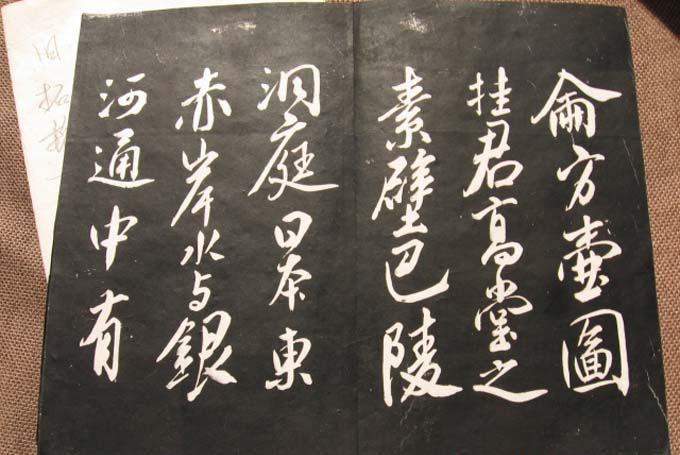 侖方壷圖
挂君高堂之
素壁巴陵
洞庭日本東
赤岸水与銀
河通中有
旧拓